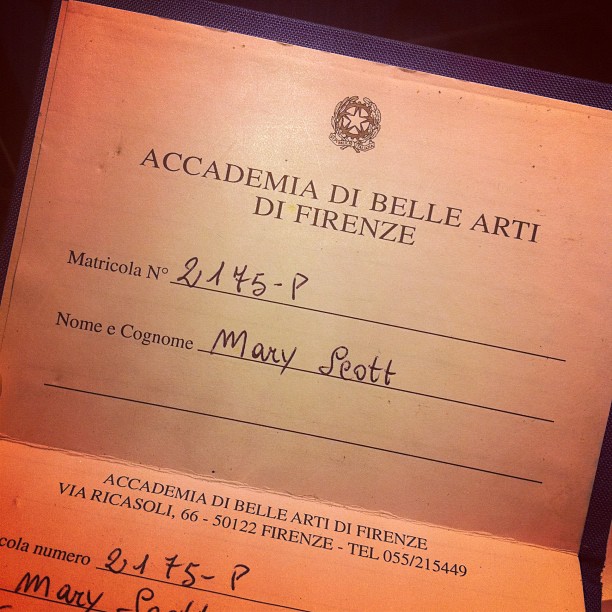 ACCADEMIA DI BELLE ARTI
DI FIRENZE
Matricola N° 2175-P
Nome e Cognome Mary Scott
ACCADEMIA DI BELLE ARTI DI FIRENZE
VIA RICASOLI, 66 - 50122 FIRENZE - TEL 055/215449
cola numero 2175-P
Mary Scott